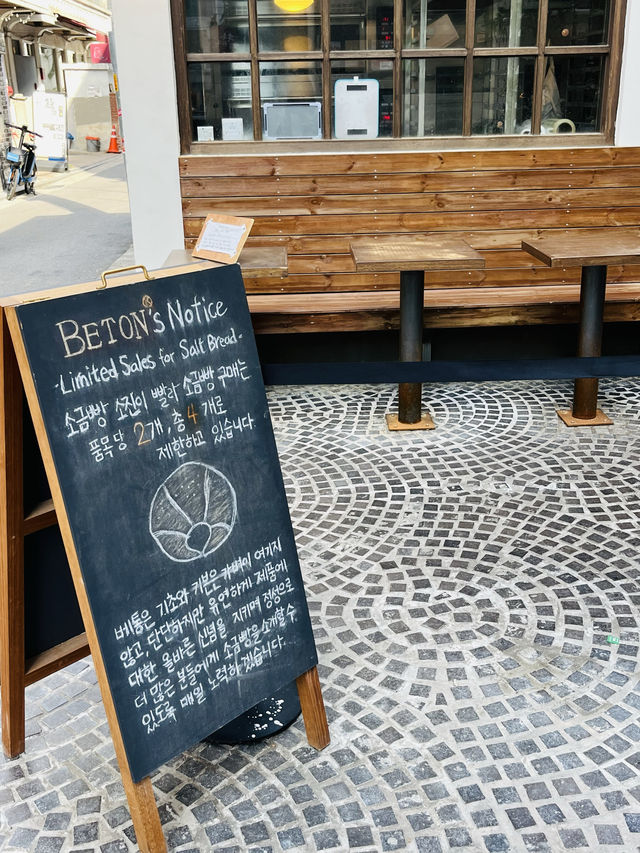 BETON's Notice
-Limited Sales for Salt Bread-
소금빵 소진이 빨라 소금빵 구매는
품목당 2개, 총 4개로
제한하고 있습니다.
베통은 기초와 기본은 가볍이 여기지
않고, 단단하지만 유연하게 제품에
대한 올바른 신념을 지키며 정성으로
더 많은 분들에게 소금빵을 소개할 수
있도록 매일 노력하겠습니다.